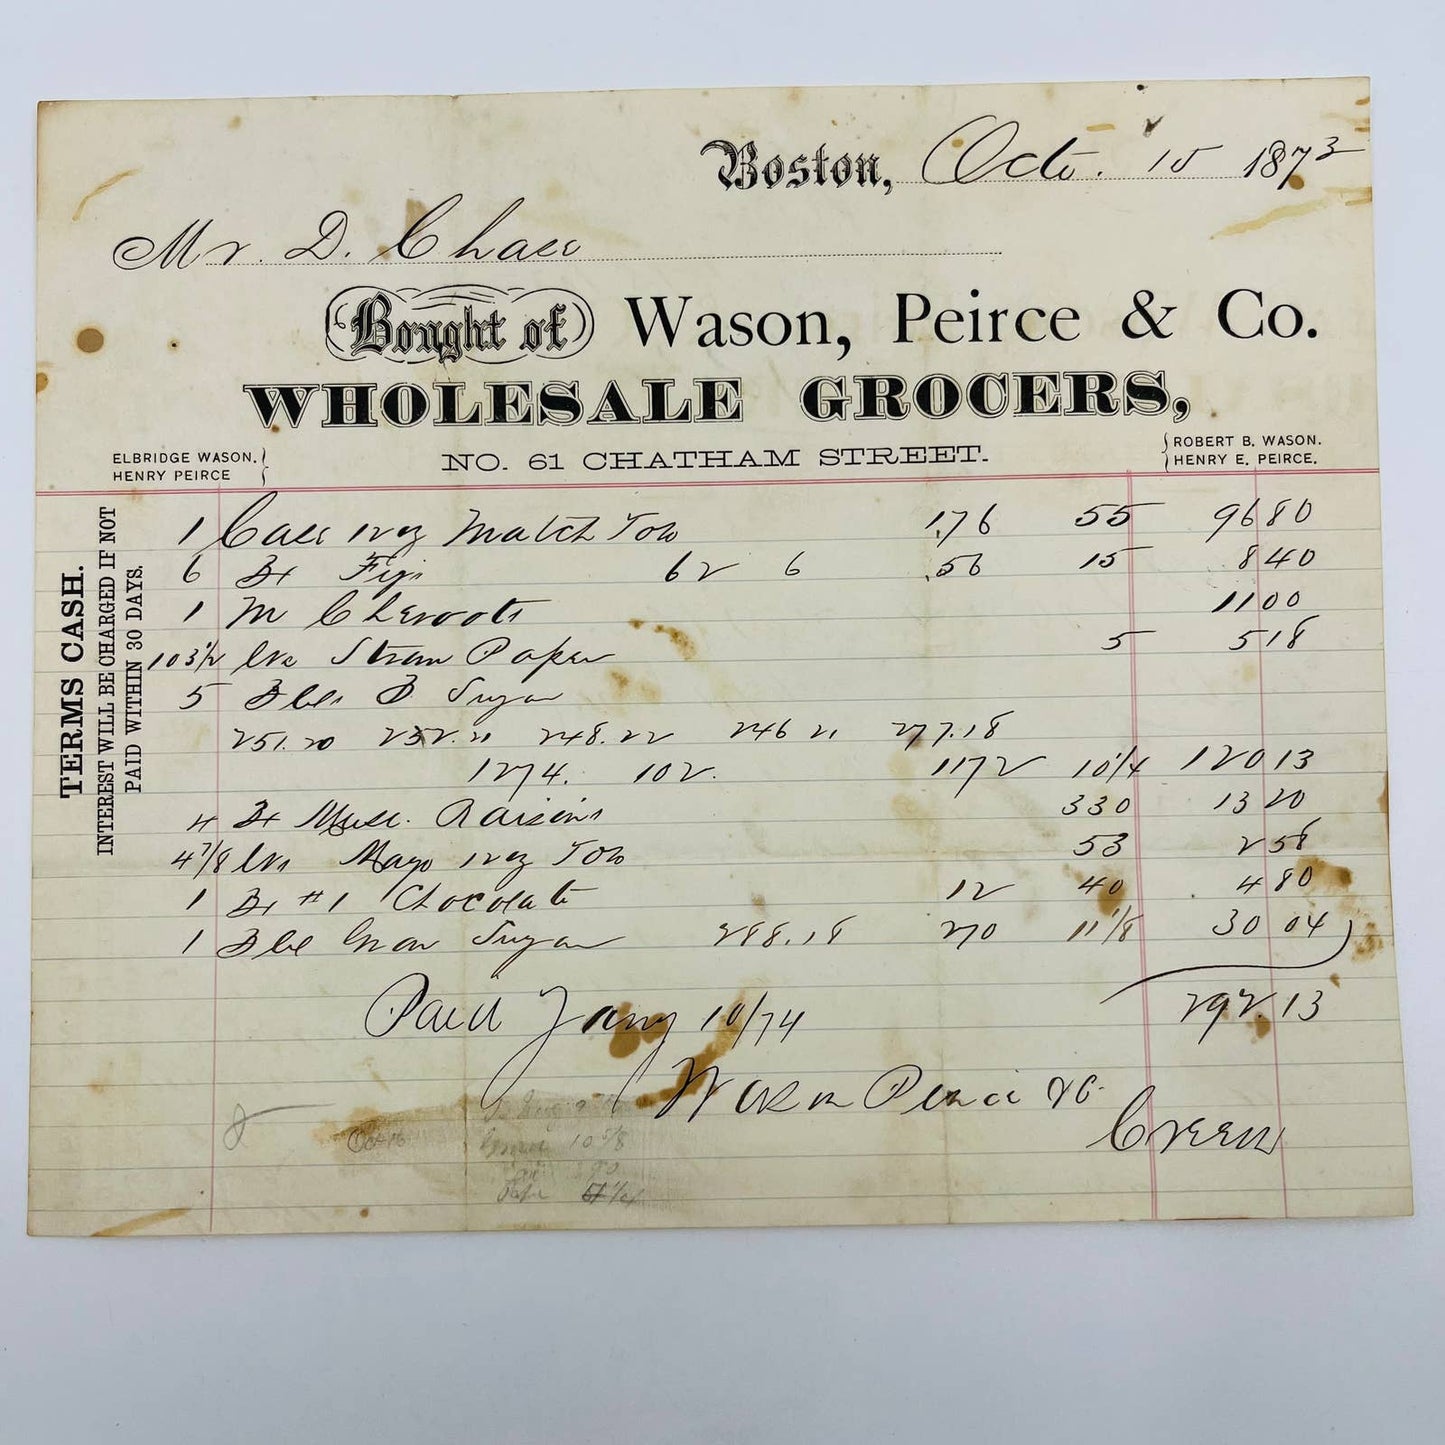 Boston, Oct. 15 1873
Mr. D. Chase
Bought of Wason, Peirce & Co.
WHOLESALE GROCERS,
NO. 61 CHATHAM STREET.
ELBRIDGE WASON.
HENRY PEIRCE
ROBERT B. WASON.
HENRY E. PEIRCE.
TERMS CASH.
INTEREST WILL BE CHARGED IF NOT
PAID WITHIN 30 DAYS.
1 Case 12 oz Match Tob 176 55 96 80
6 Bx Figs 62 6 .56 15 8 40
1 M Cheroots 11 00
103 1/2 lbs Straw Paper 5 5 18
5 Bbls B Sugar
251.20 252.21 248.22 246 21 277.18
1274. 102. 1172 10 1/4 120 13
4 Bx Musc. Raisins 330 13 20
4 7/8 lbs Mayo 12 oz Tob 53 2 58
1 Bx #1 Chocolate 12 40 4 80
1 Bbl Gran Sugar 288.18 270 11 1/8 30 04
292.13
Paid Jany 10/74
Wason Peirce & Co.
Green
Oct 16
10 5/8
90